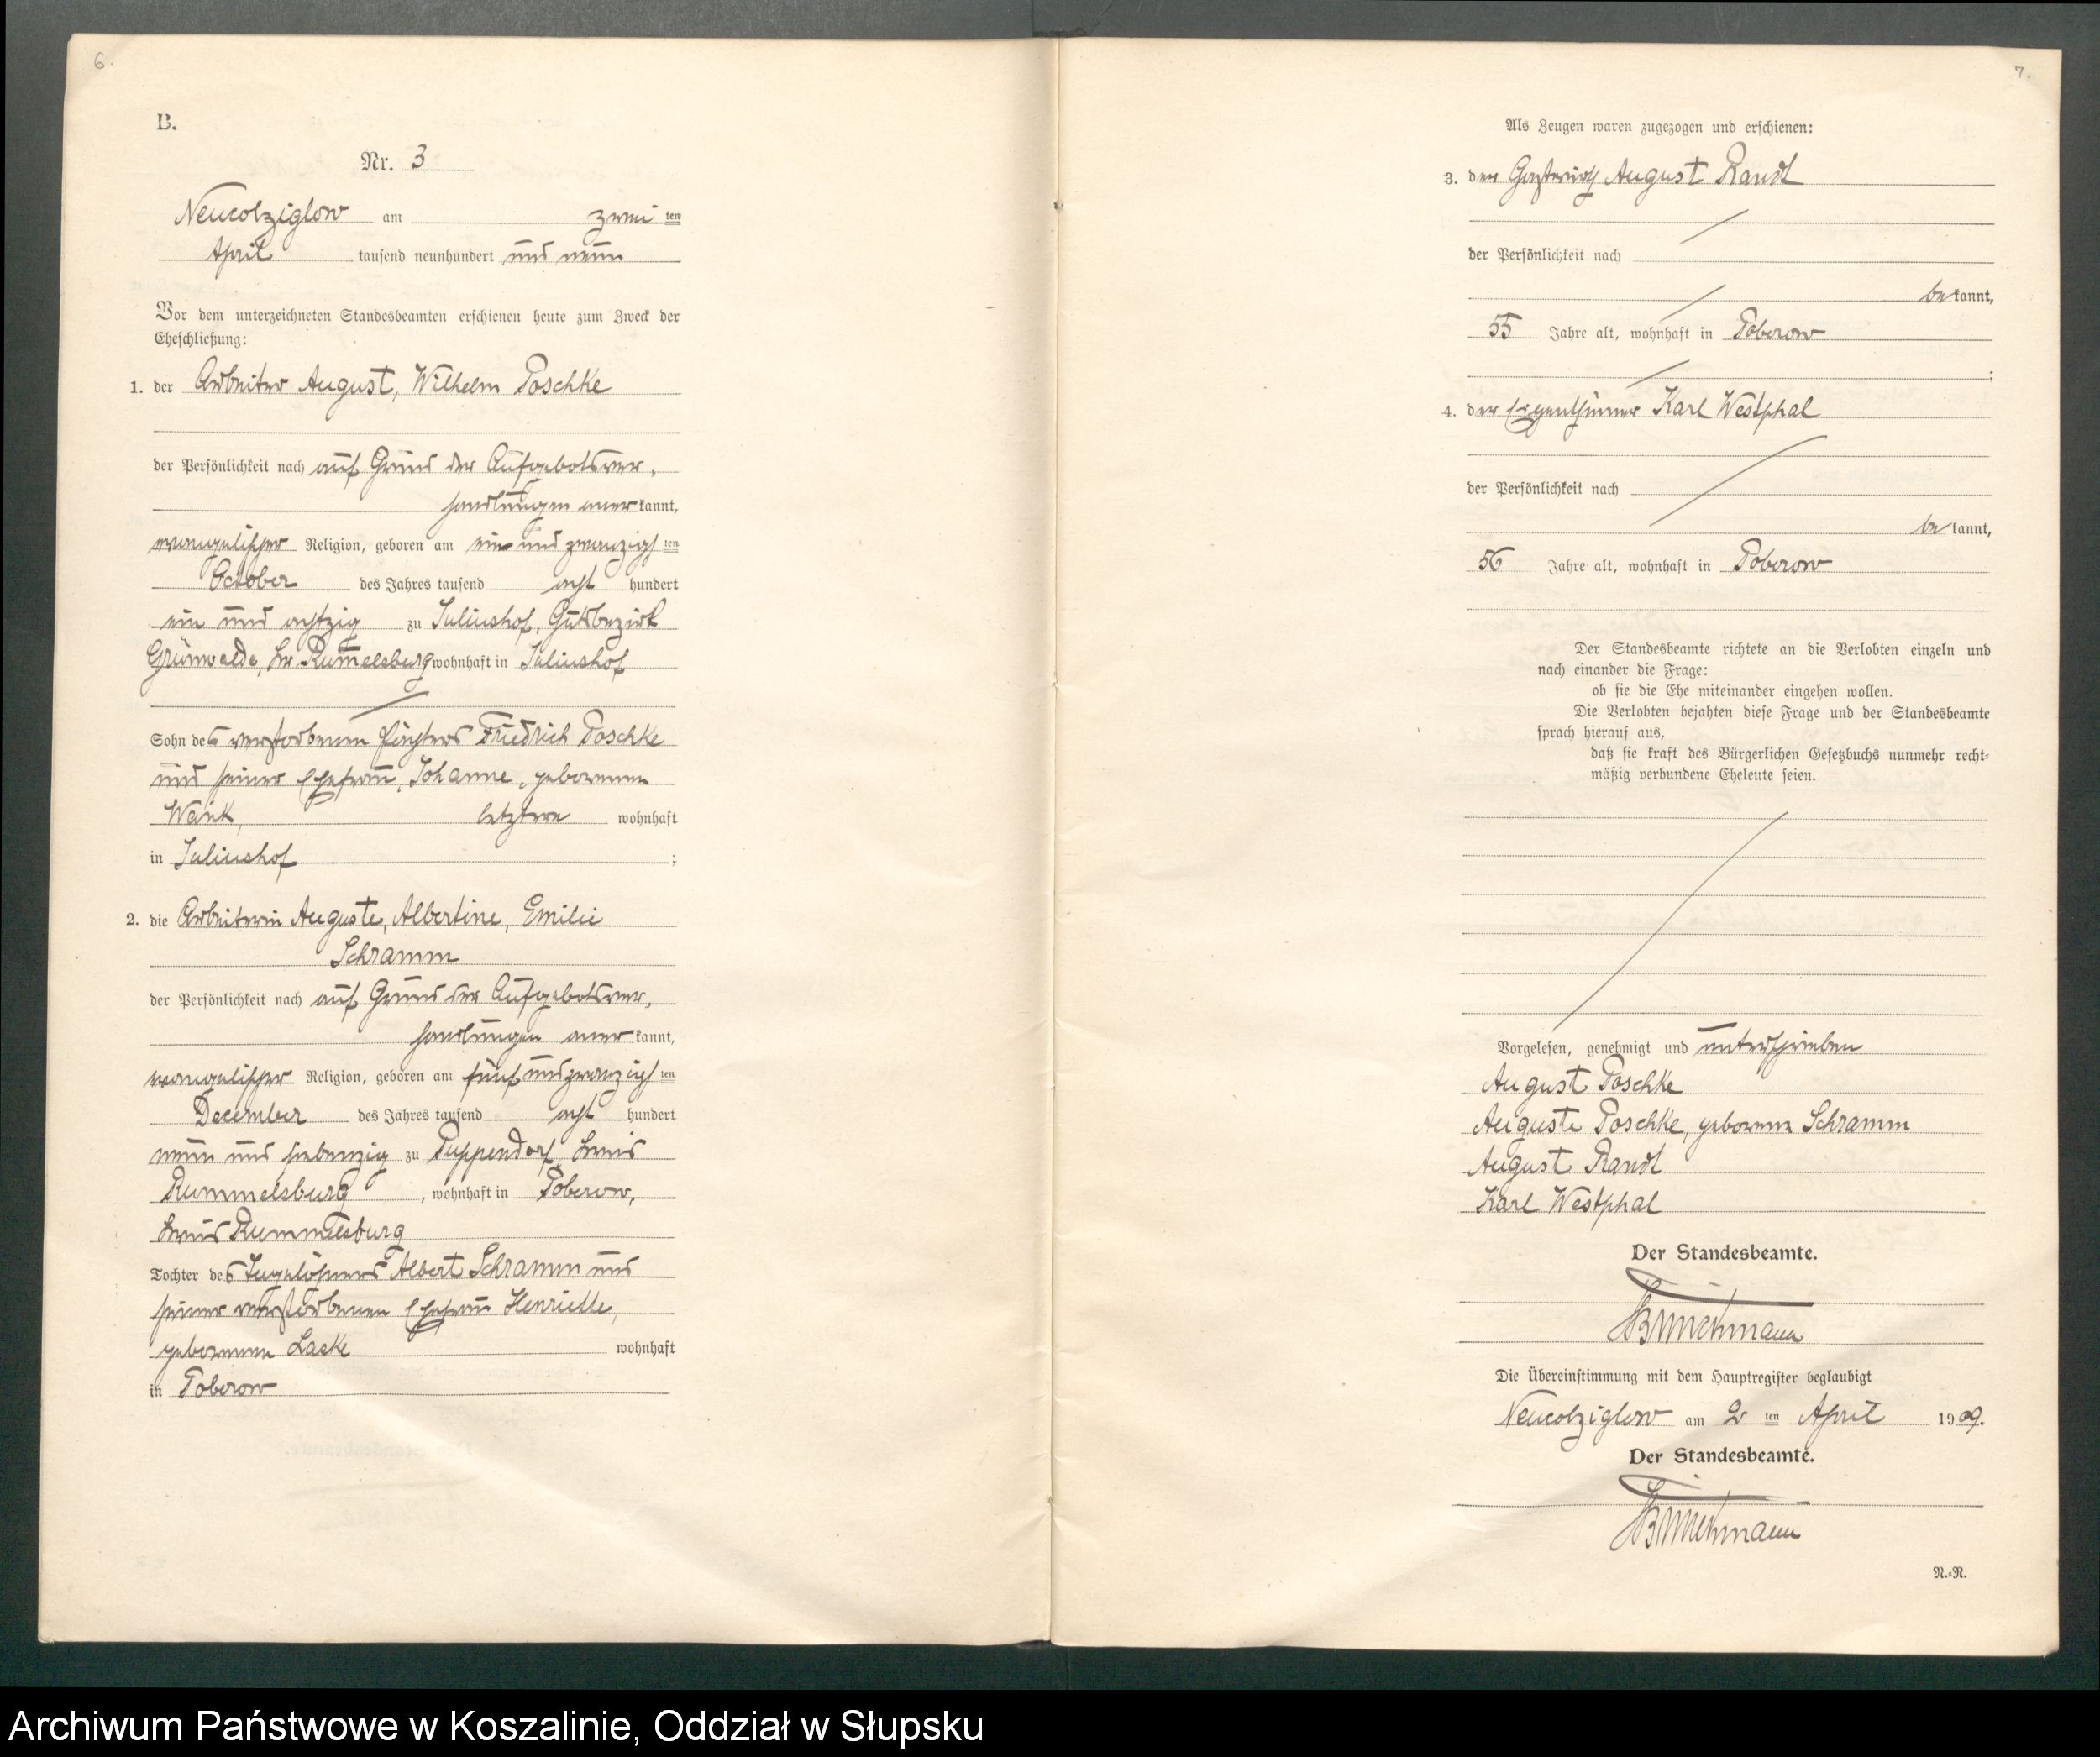 6.
B.
Nr. 3
Neucolziglow am zwei ten
April tausend neunhundert und neun
Vor dem unterzeichneten Standesbeamten erschienen heute zum Zweck der
Eheschließung:
1. der Arbeiter August, Wilhelm Poschke
der Persönlichkeit nach auf Grund der Aufgebotsver-
handlungen aner kannt,
evangelischer Religion, geboren am ein und zwanzigsten
October des Jahres tausend acht hundert
ein und achtzig zu Juliushof, Gutsbezirk
Grünwalde, Kr. Rummelsburg wohnhaft in Juliushof
Sohn des verstorbenen Försters Friedrich Poschke
und seiner Ehefrau, Johanne, geborenen
letztere wohnhaft
in Juliushof ;
2. die Arbeiterin Auguste, Albertine, Emilie
Schramm
der Persönlichkeit nach auf Grund der Aufgebotsver-
handlungen aner kannt,
evangelischer Religion, geboren am fünf und zwanzigsten
December des Jahres tausend acht hundert
neun und siebenzig zu Puppendorf, Kreis
Rummelsburg, wohnhaft in Poberow,
Kreis Rummelsburg
Tochter des Tagelöhners Albert Schramm und
seiner verstorbenen Ehefrau Henriette,
geborenen Laske wohnhaft
in Poberow
7.
Als Zeugen waren zugezogen und erschienen:
3. der Gastwirth August Randt
der Persönlichkeit nach
be kannt,
55 Jahre alt, wohnhaft in Poberow
;
4. der Eigenthümer Karl Westphal
der Persönlichkeit nach
be kannt,
56 Jahre alt, wohnhaft in Poberow
Der Standesbeamte richtete an die Verlobten einzeln und
nach einander die Frage:
ob sie die Ehe miteinander eingehen wollen.
Die Verlobten bejahten diese Frage und der Standesbeamte
sprach hierauf aus,
daß sie kraft des Bürgerlichen Gesetzbuchs nunmehr recht-
mäßig verbundene Eheleute seien.
Vorgelesen, genehmigt und unterschrieben
August Poschke
Auguste Poschke, geborene Schramm
August Randt
Karl Westphal
Der Standesbeamte.
Die Übereinstimmung mit dem Hauptregister beglaubigt
Neucolziglow am 2 ten April 1909.
Der Standesbeamte.
N.-R.
Archiwum Państwowe w Koszalinie, Oddział w Słupsku